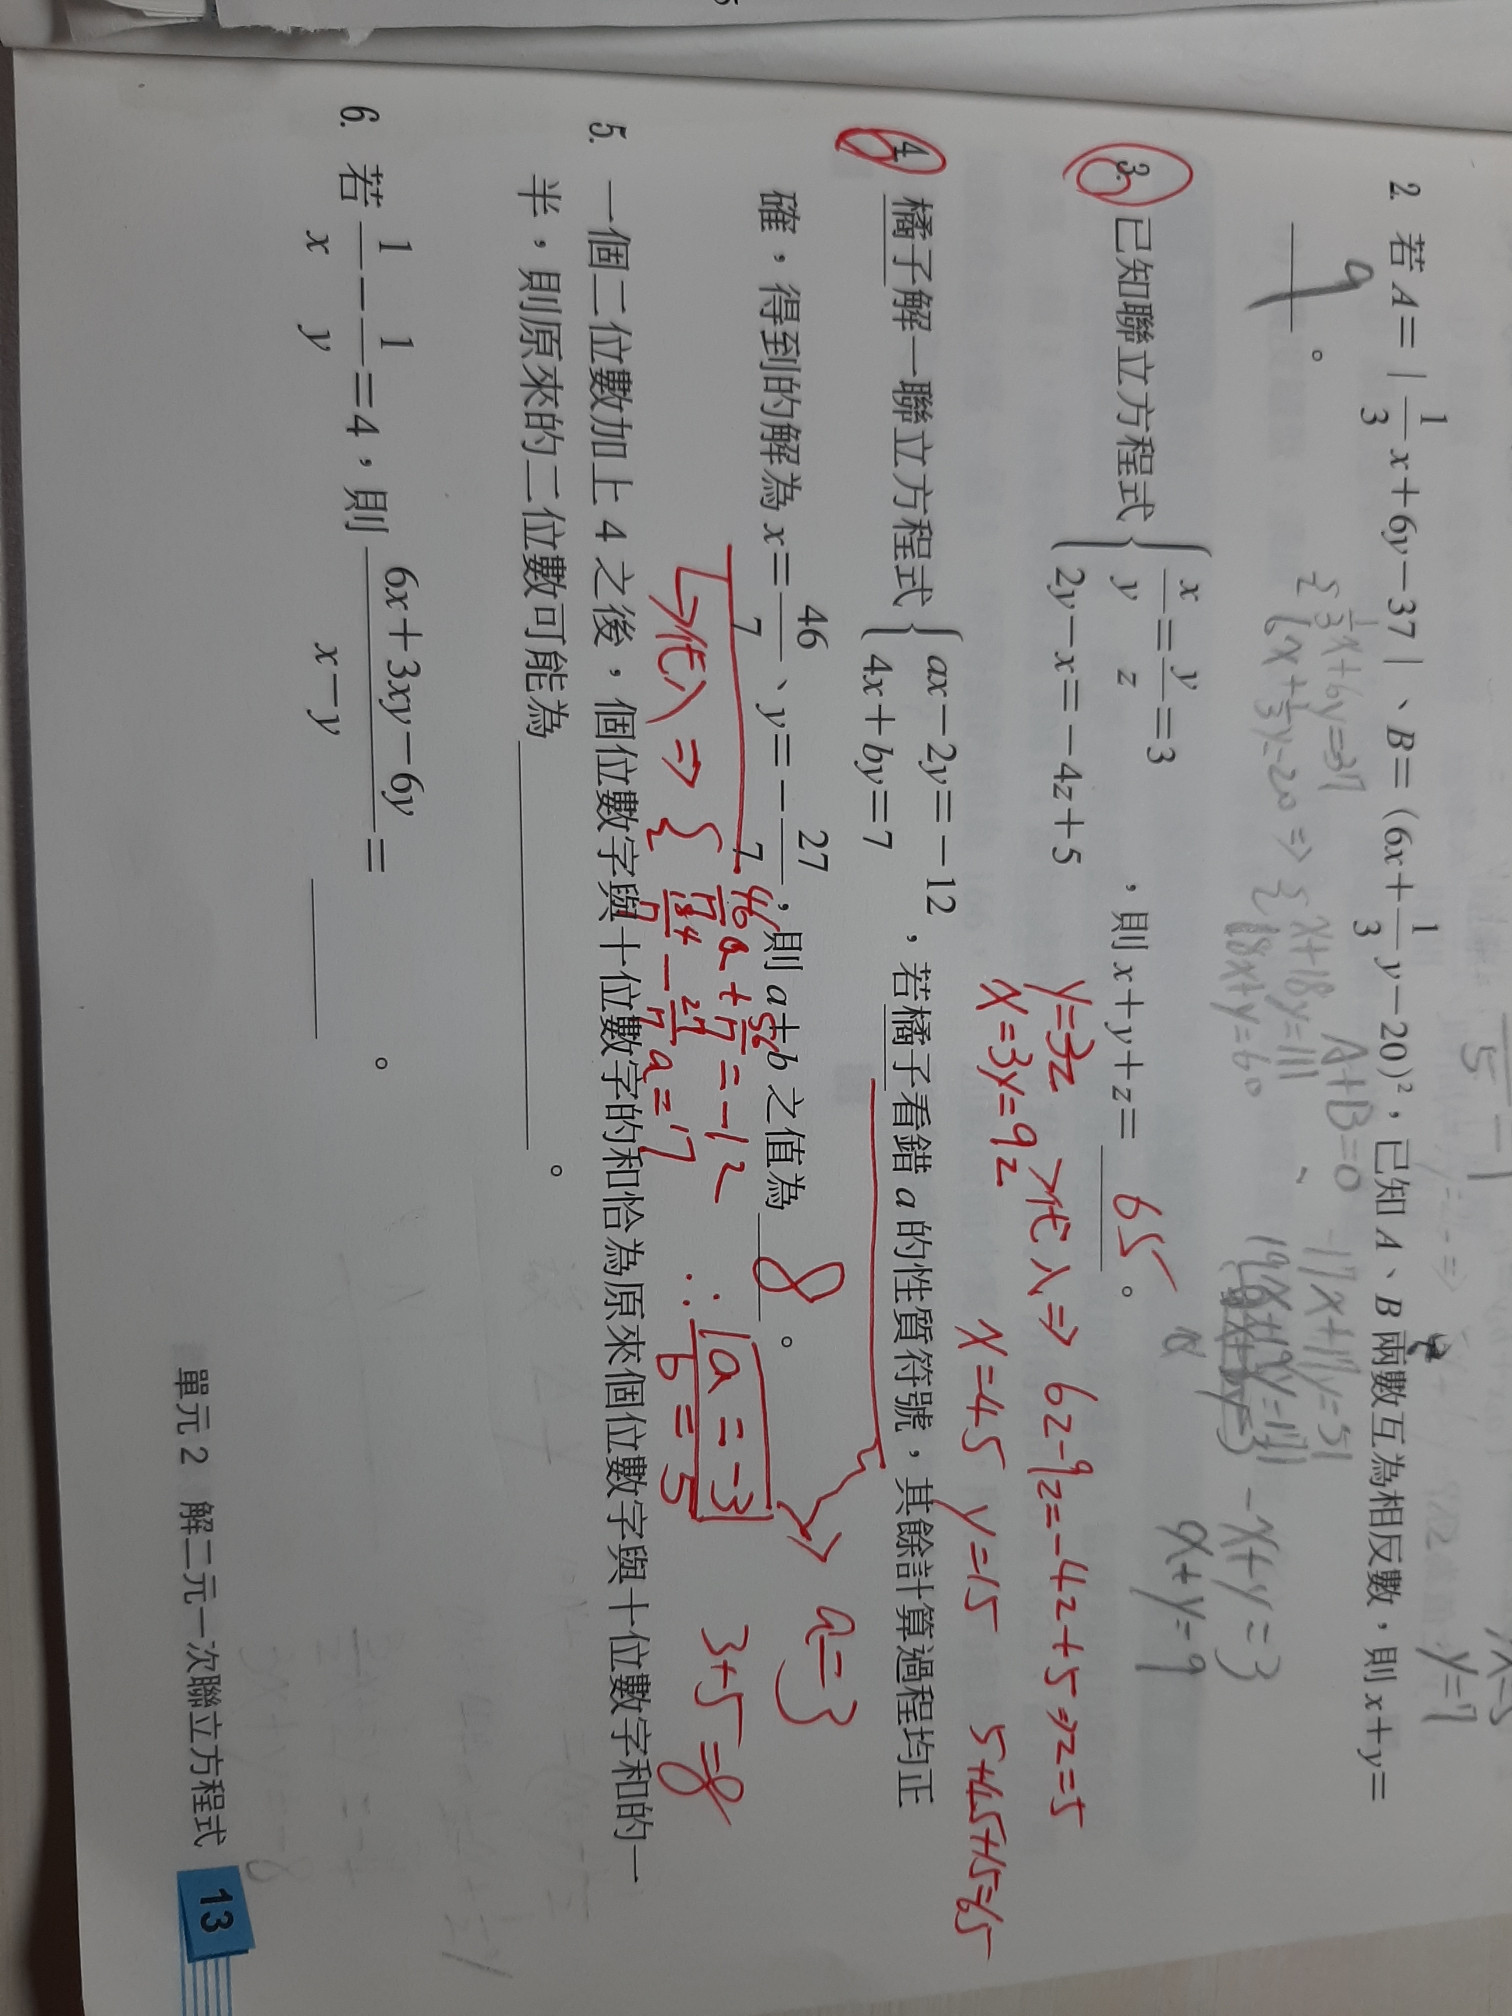 x=5
y=7
2. 若A=|1/3x+6y-37|、B=(6x+1/3y-20)²,已知A、B兩數互為相反數,則x+y=
9。
A+B=0
{1/3x+6y=37 ⇒ {x+18y=111
{6x+1/3y=20 ⇒ {18x+y=60
-17x+17y=51
19x+19y=171
-x+y=3
x+y=9
3. 已知聯立方程式{x/y=y/z=3
2y-x=-4z+5,則x+y+z=65。
y=3z
x=3y=9z >代入⇒ 6z-9z=-4z+5⇒z=5
x=45 y=15 5+45+15=65
4. 橘子解一聯立方程式{ax-2y=-12
4x+by=7,若橘子看錯a的性質符號,其餘計算過程均正
確,得到的解為x=46/7、y=-27/7,則a+b之值為8。
↳代入⇒{46/7a+54/7=-12
184/7-27/7a=7
∴a=-3
b=5
a=3
3+5=8
5. 一個二位數加上4之後,個位數字與十位數字的和恰為原來個位數字與十位數字和的一
半,則原來的二位數可能為。
6. 若1/x-1/y=4,則6x+3xy-6y/x-y=。
單元2 解二元一次聯立方程式 13